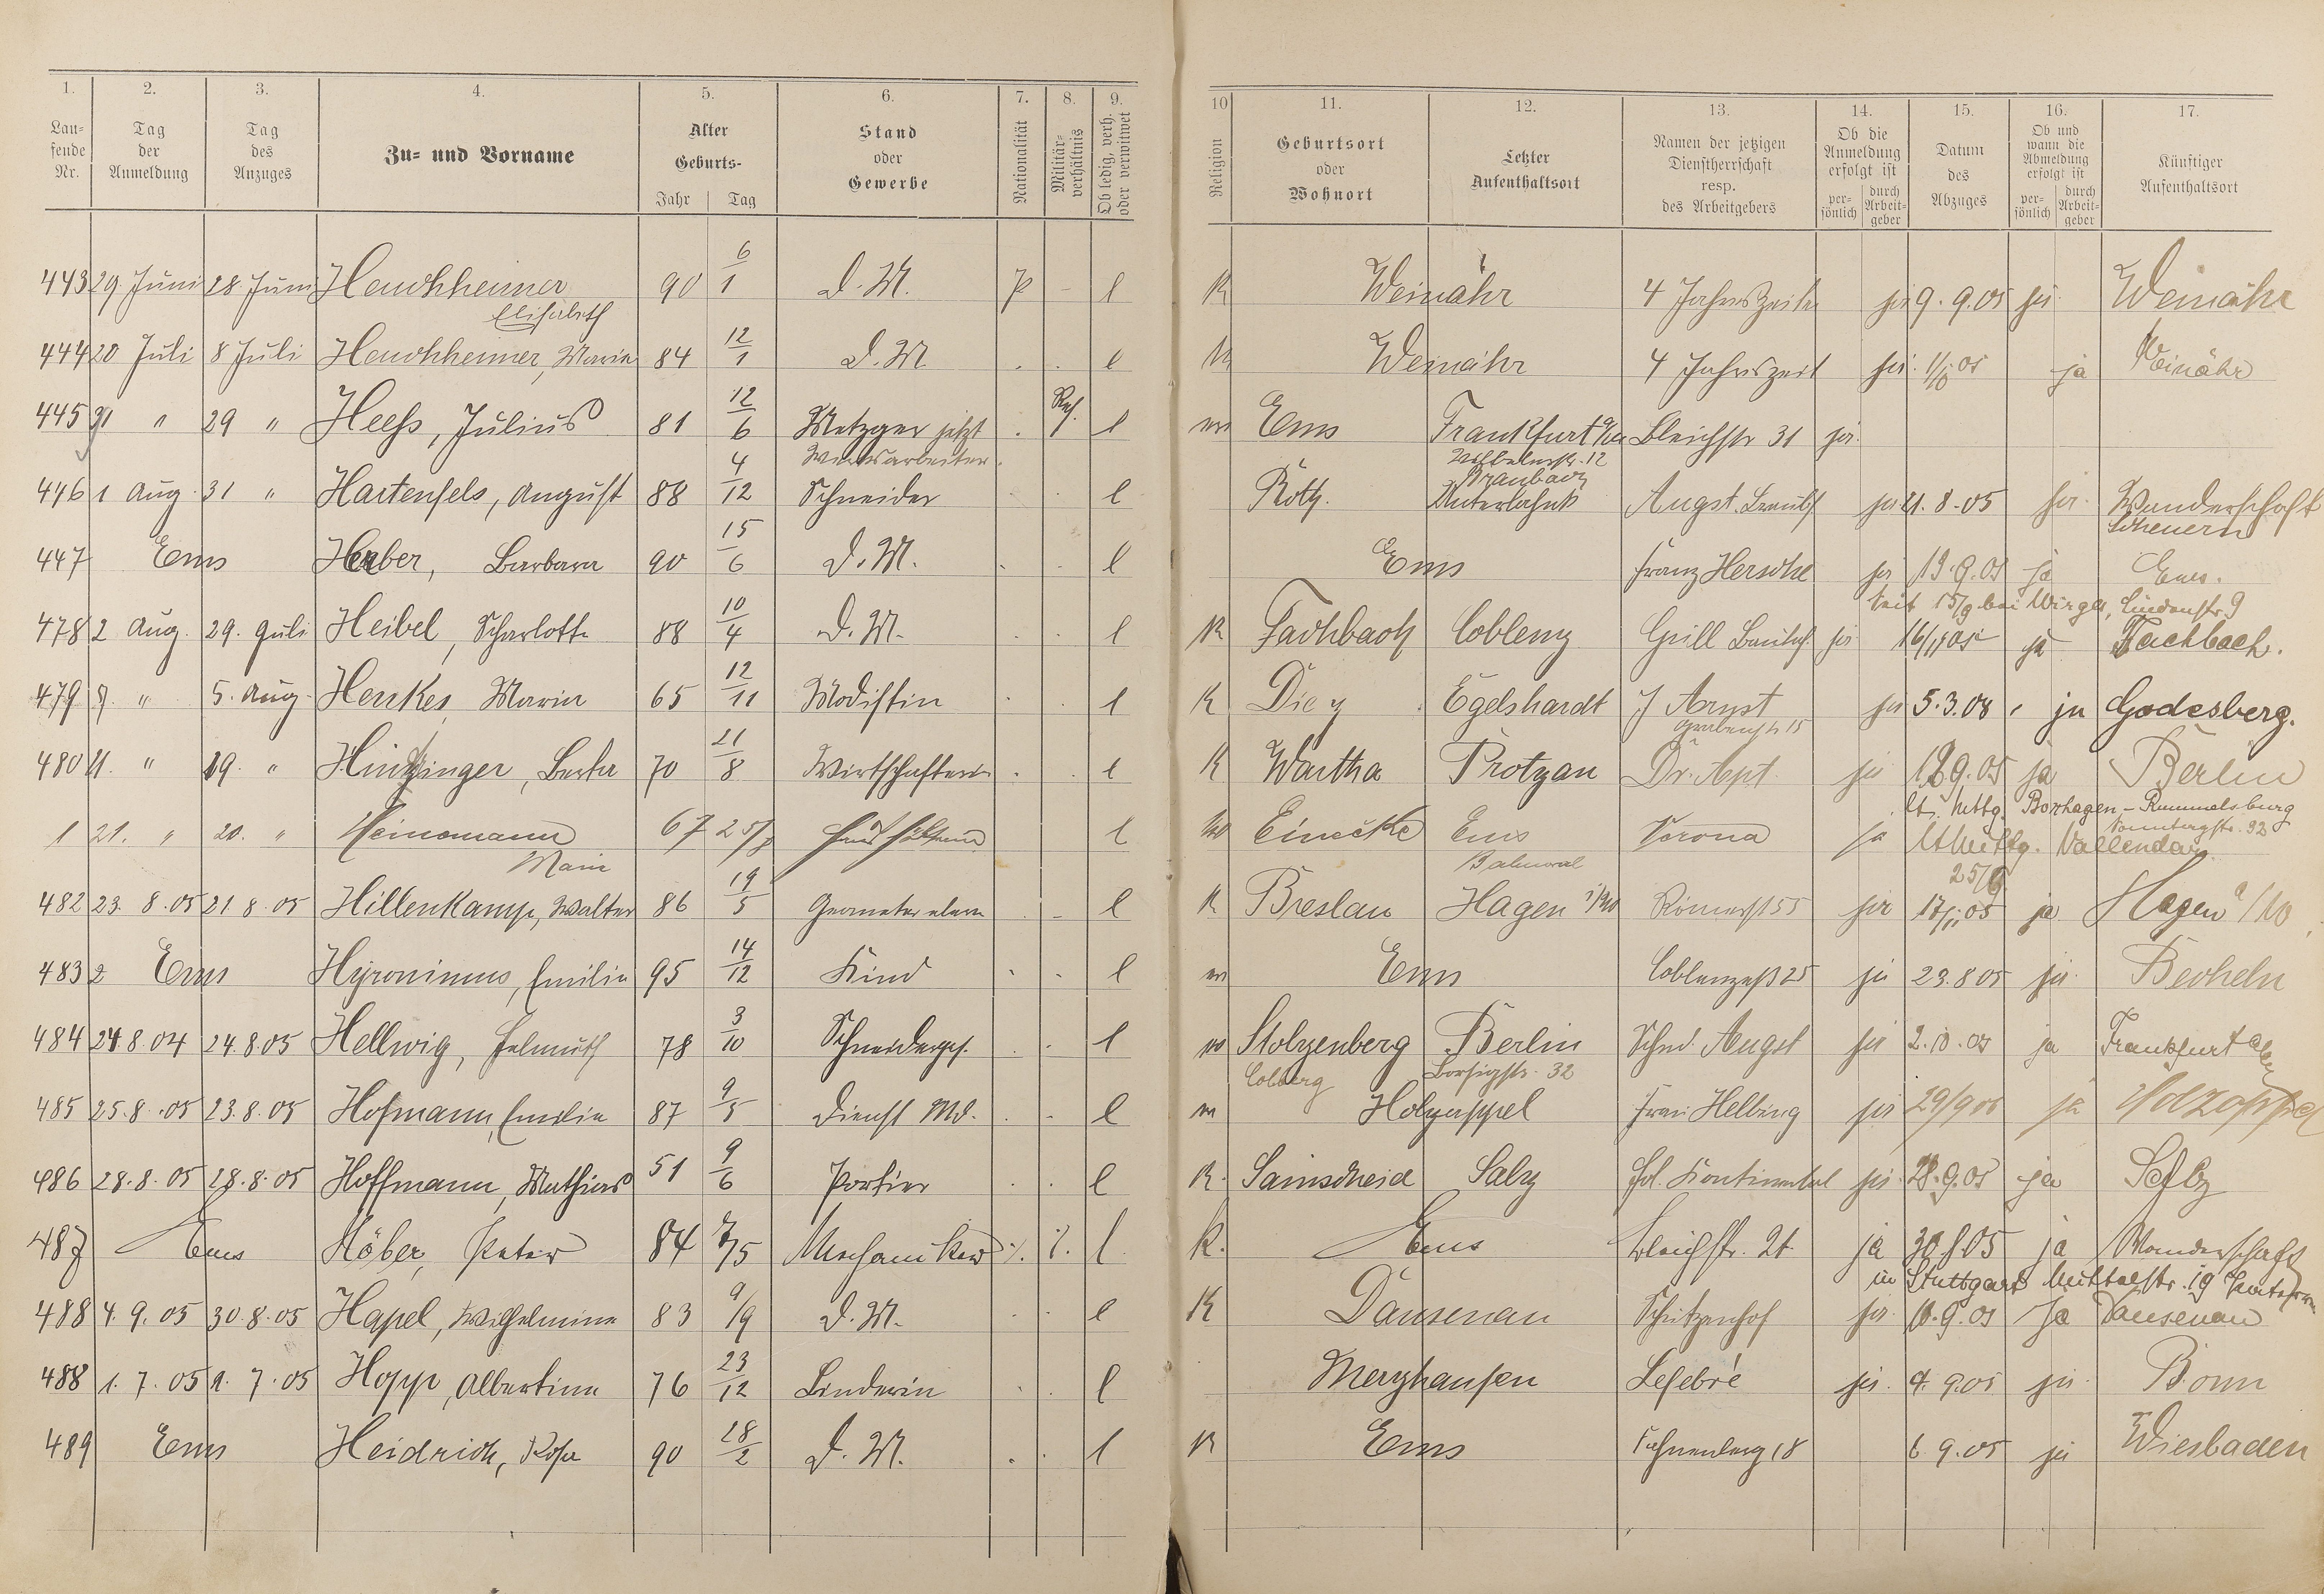 1. 2. 3. 4. 5. 6. 7. 8. 9.
Lau-
fende
Nr.
Tag
der
Anmeldung
Tag
des
Anzuges
Zu- und Vorname
Alter
Geburts-
Jahr Tag
Stand
oder
Gewerbe
Nationalität
Militär-
verhältnis
Ob ledig, verh.
oder verwitwet
10 11. 12. 13. 14. 15. 16. 17.
Religion
Geburtsort
oder
Wohnort
Letzter
Aufenthaltsort
Namen der jetzigen
Dienstherrschaft
resp.
des Arbeitgebers
Ob die
Anmeldung
erfolgt ist
per-
sönlich
durch
Arbeit-
geber
Datum
des
Abzuges
Ob und
wann die
Abmeldung
erfolgt ist
per-
sönlich
durch
Arbeit-
geber
Künftiger
Aufenthaltsort
443 29. Juni 28. Juni Heuchheimer 90 6/1 D. M. P - l K Weinähr 4 Jahreszeiten ja 9. 9. 05 ja Weinähr
Elisabeth
444 20 Juli 8 Juli Heuchheimer, Maria 84 12/1 D. M. . . l K Weinähr 4 Jahreszeit ja 05 ja Weinähr
445 31 " 29 " Heess, Julius 81 12/6 Metzger jetzt . Res. l Ems Frankfurt a/M Bleichstr 31 ja
Wilhelmstr. 12
446 1 Aug. 31 " Hartenfels, August 88 4/12 Schneider . . l Braubach Unterlahnk Augst. ja 21. 8. 05 ja Wanderschaft
Scheuern
447 Ems Herber, Barbara 90 15/6 D. M. . . l Ems Franz Hersche ja 19. 9. 05 ja Ems.
seit 15/9 bei Wirges, Lindenstr. 9
478 2 Aug. 29. Juli Heibel, Scharlotte 88 10/4 D. M. . . l K Fachbach Coblenz Grill ja 16/11 05 ja Fachbach.
479 " 5. Aug. Henkes, Maria 65 12/11 Modistin . . l K Diez Egelshardt J Arnst ja 5. 3. 08 ja Godesberg.
Grabenstr 15
480 21. " 19. " Hintzinger, Berta 70 21/8 Wirtschafterin . . l K Wartha Protzan Dr. Apt. ja 9. 05 ja Berlin
lt. Mttg. Boxhagen-Rummelsburg
Sonntagstr. 32
1 21. " 20. " Heinemann 67 25/ l Einecke Ems Verona ja lt Mittg. Vallendar
Marie Balmoral 25/
482 23. 8. 05 21 8. 05 Hillenkamp, Walter 86 19/5 Geometer eleve . - l K Breslau Hagen i/W Römerst 55 ja 17/11 05 ja Hagen i/W
483 2 Ems Hyronimus, Emilie 95 14/12 Kind . . l Ems Coblenzerst 25 ja 23. 8 05 ja Becheln
484 24 8. 04 24. 8 05 Hellwig, Helmuth 78 3/10 Schneiderges. . . l Stolzenberg Berlin Schnd. Augst ja 2. 10. 05 ja Frankfurt
Colberg Borsigstr. 32
485 25. 8. 05 23. 8. 05 Hofmann, Emilie 87 9/5 Dienst Md. . . l Holzappel Frau Helbing ja 29/9 05 ja Holzappel
486 28. 8. 05 28. 8. 05 Hoffmann, Mathias 51 9/6 Portier . . l K. Sainscheid Salz Hot. Kontinental ja 28. 9. 05 ja Selz
487 Ems Höber, Peter 84 7/5 Mechaniker l K. Ems Bleichstr. 21 ja 30. 8. 05 ja Wanderschaft
in Stuttgart
488 4. 9. 05 30. 8. 05 Hapel, Wilhelmine 83 9/9 D. M. . . l K Dausenau Schützenhof ja 10. 9. 05 Ja Dausenau
488 1. 7. 05 1. 7. 05 Hopp, Albertine 76 23/12 Binderin . . l Merzhausen Lefebré ja 4. 9. 05 ja Bonn
489 Ems Heidrich, Rosa 90 28/2 D. M. . . l K Ems Fahnenberg 18 6 9. 05 ja Wiesbaden